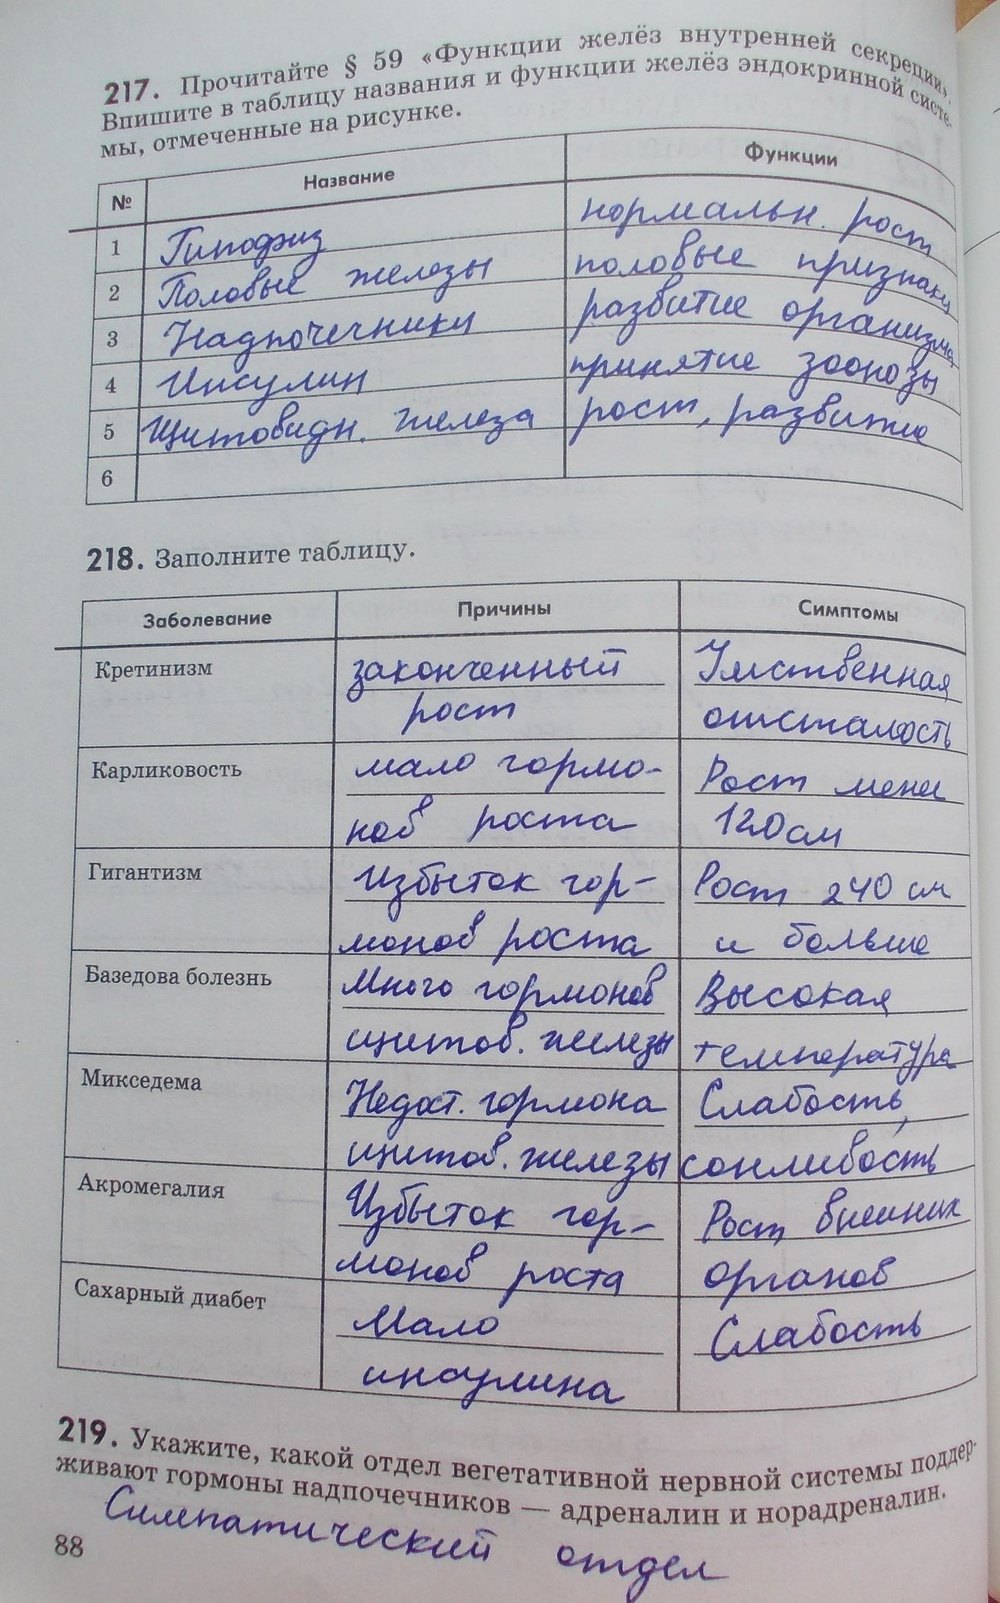 217. Прочитайте § 59 «Функции желёз внутренней секреции».
Впишите в таблицу названия и функции желёз эндокринной систе-
мы, отмеченные на рисунке.
№ Название Функции
1 Гипофиз нормальн. рост
2 Половые железы половые признаки
3 Надпочечники развитие организма
4 Инсулин принятие зоопозы
5 Щитовидн. железа рост, развитие
6
218. Заполните таблицу.
Заболевание Причины Симптомы
Кретинизм законченный Умственная
рост отсталость
Карликовость мало гормо- Рост менее
нов роста 120 см
Гигантизм Избыток гор- Рост 240 см
монов роста и больше
Базедова болезнь Много гормонов Высокая
щитов. железы температура
Микседема Недост. гормона Слабость,
щитов. железы сонливость
Акромегалия Избыток гор- Рост внешних
монов роста органов
Сахарный диабет Мало Слабость
инсулина
219. Укажите, какой отдел вегетативной нервной системы поддер-
живают гормоны надпочечников — адреналин и норадреналин.
Симпатический отдел
88